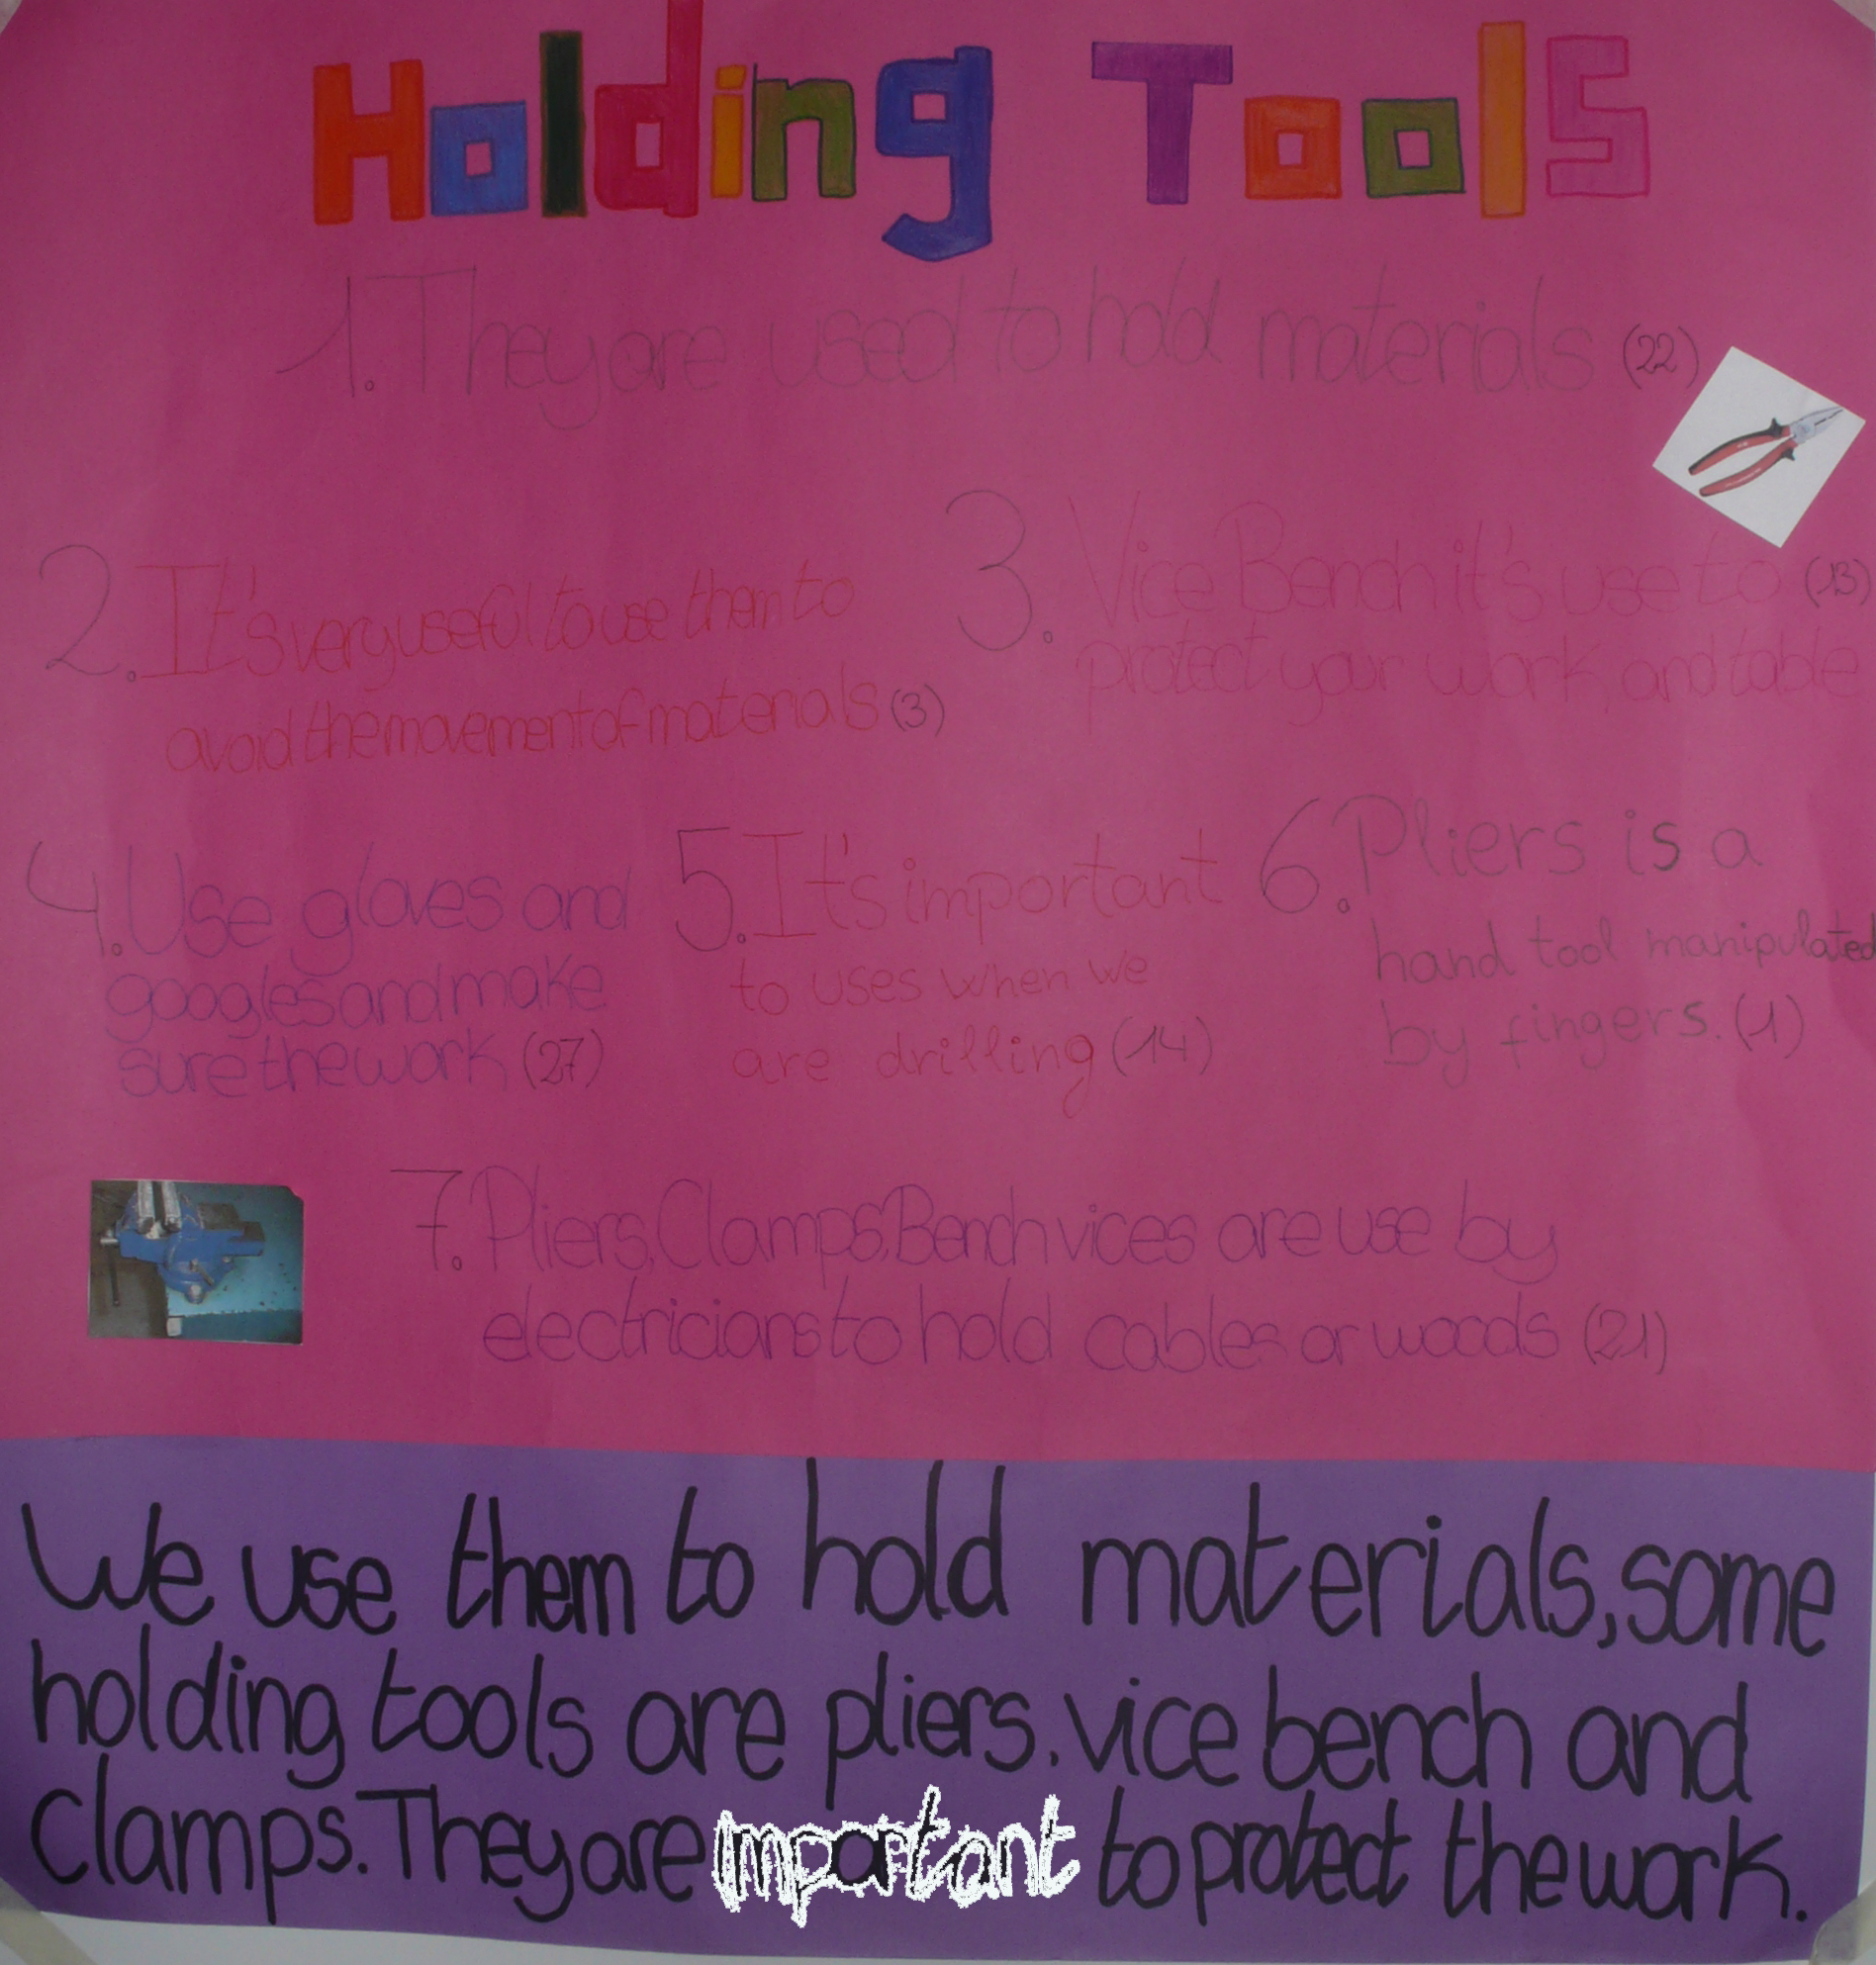 Holding Tools
1. They are used to hold materials (22)
2. It's very useful to use them to
avoid the movement of materials (3)
3. Vice Bench it's use to (13)
protect your work, and table
4. Use gloves and
googles and make
sure the work (27)
5. It's important
to uses when we
are drilling (14)
6. Pliers is a
hand tool manipulated
by fingers. (1)
7. Pliers, Clamps, Bench vices are use by
electricians to hold cables or woods (21)
We use them to hold materials, some
holding tools are pliers. vice bench and
clamps. They are important to protect the work.